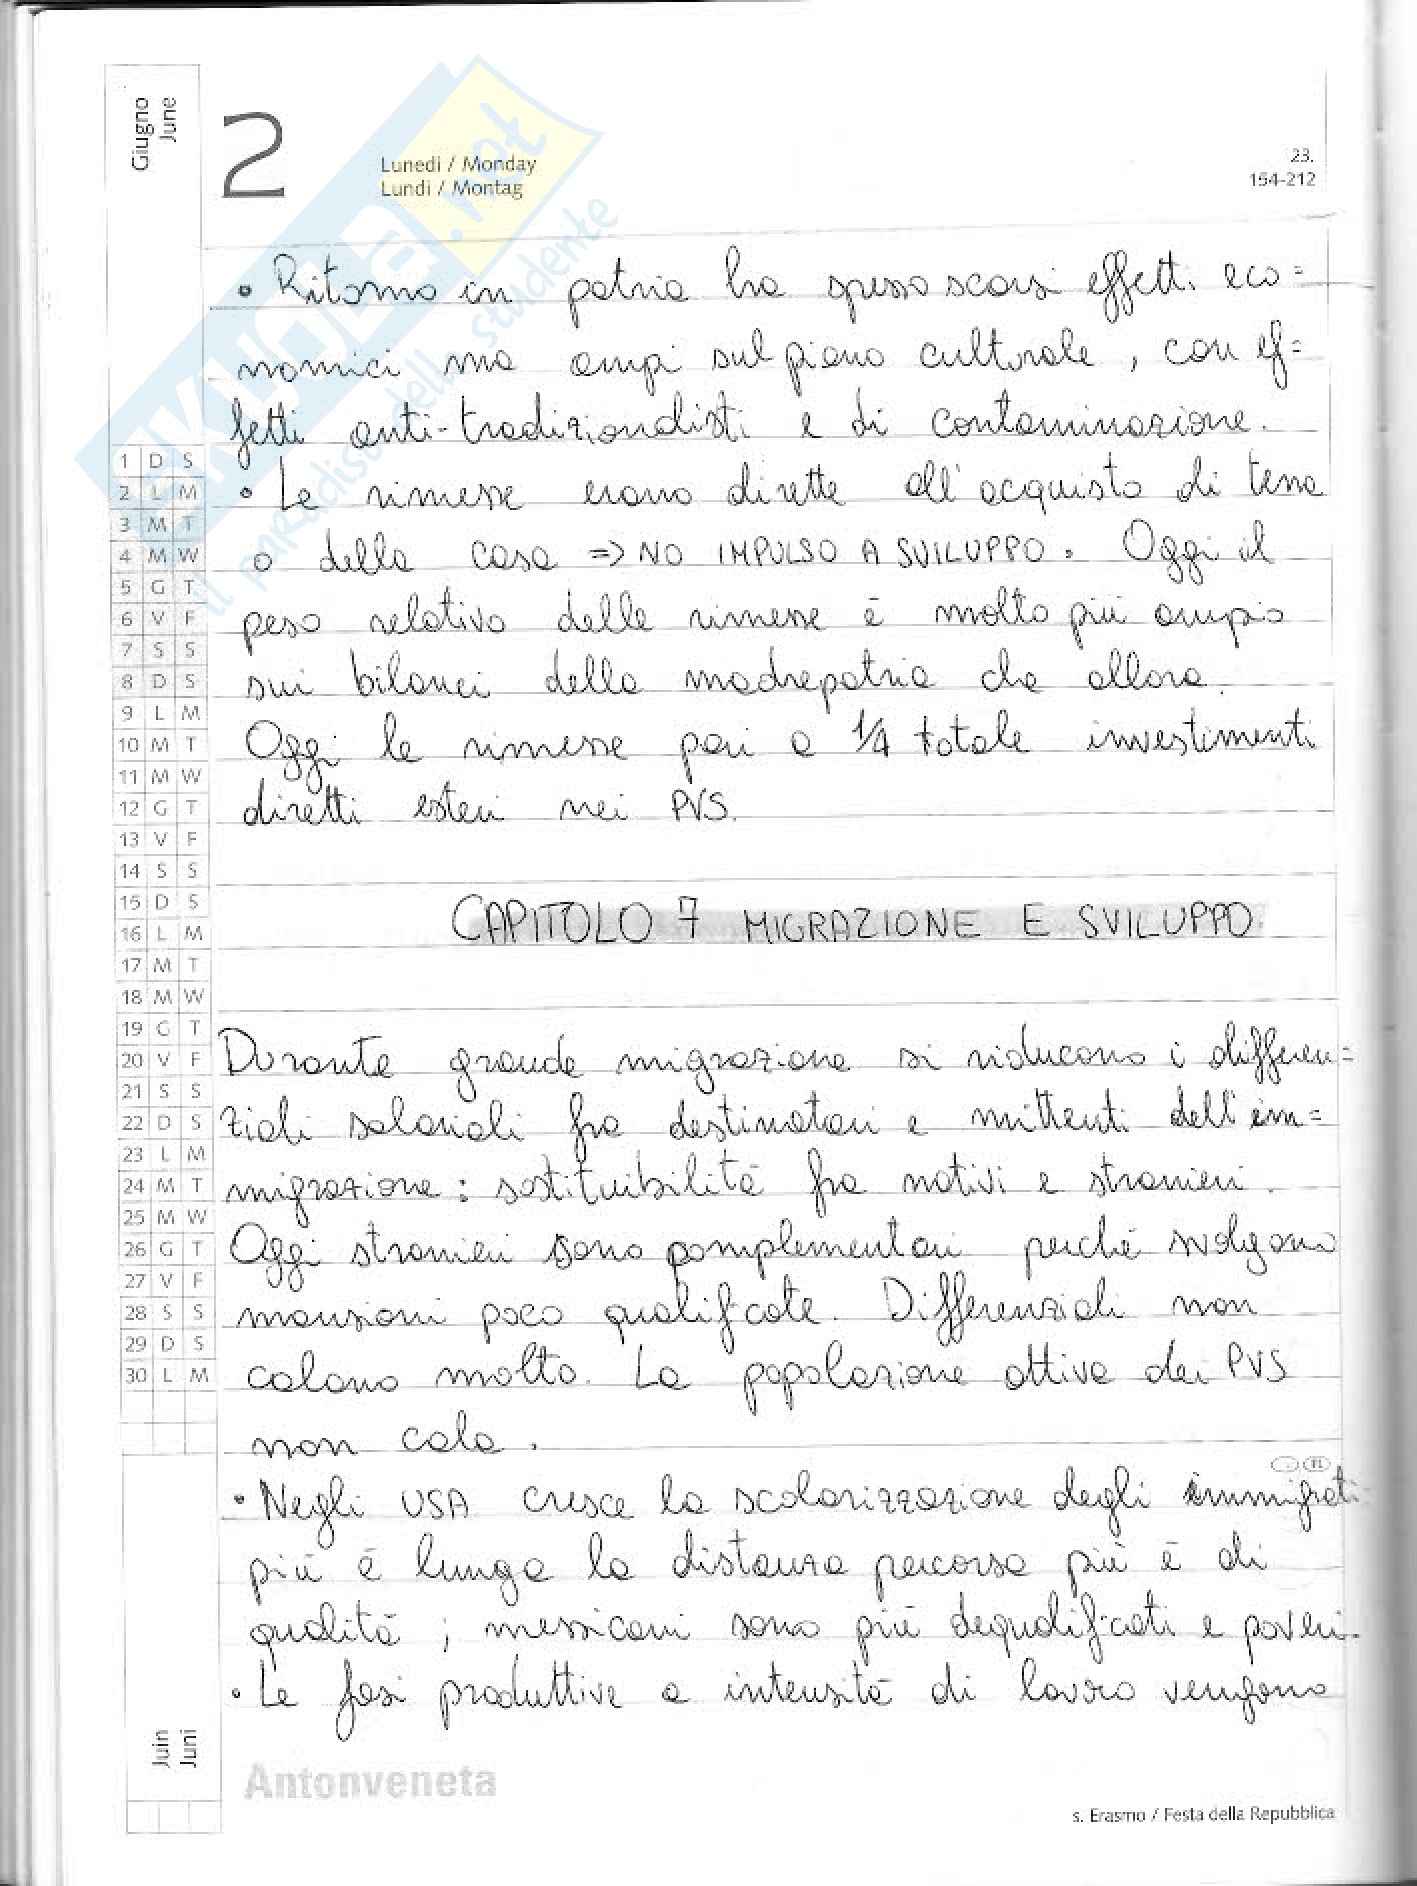 Giugno
June
2
Lunedì / Monday
Lundi / Montag
23.
154-212
SKUOLA.net
il paradiso dello studente
• Ritorno in patria ha spesso scarsi effetti eco=
nomici ma ampi sul piano culturale, con ef=
fetti anti-tradizionalisti e di contaminazione.
• Le rimesse erano dirette all'acquisto di terra
o della casa => NO IMPULSO A SVILUPPO. Oggi il
peso relativo delle rimesse è molto più ampio
sui bilanci della madrepatria che allora.
Oggi le rimesse pari a 1/4 totale investimenti
diretti esteri nei PVS.
CAPITOLO 7 MIGRAZIONE E SVILUPPO
Durante grande migrazione si riducono i differen=
ziali salariali fra destinatari e mittenti dell'im=
migrazione: sostituibilità fra nativi e stranieri.
Oggi stranieri sono complementari perché svolgono
mansioni poco qualificate. Differenziali non
calano molto. La popolazione attiva dei PVS
non cala.
• Negli USA cresce la scolarizzazione degli immigrati
più è lunga la distanza percorsa più è di
qualità; messicani sono più dequalificati e poveri.
• Le fasi produttive a intensità di lavoro vengono
1 D S
2 L M
3 M T
4 M W
5 G T
6 V F
7 S S
8 D S
9 L M
10 M T
11 M W
12 G T
13 V F
14 S S
15 D S
16 L M
17 M T
18 M W
19 G T
20 V F
21 S S
22 D S
23 L M
24 M T
25 M W
26 G T
27 V F
28 S S
29 D S
30 L M
Juin
Juni
Antonveneta
s. Erasmo / Festa della Repubblica